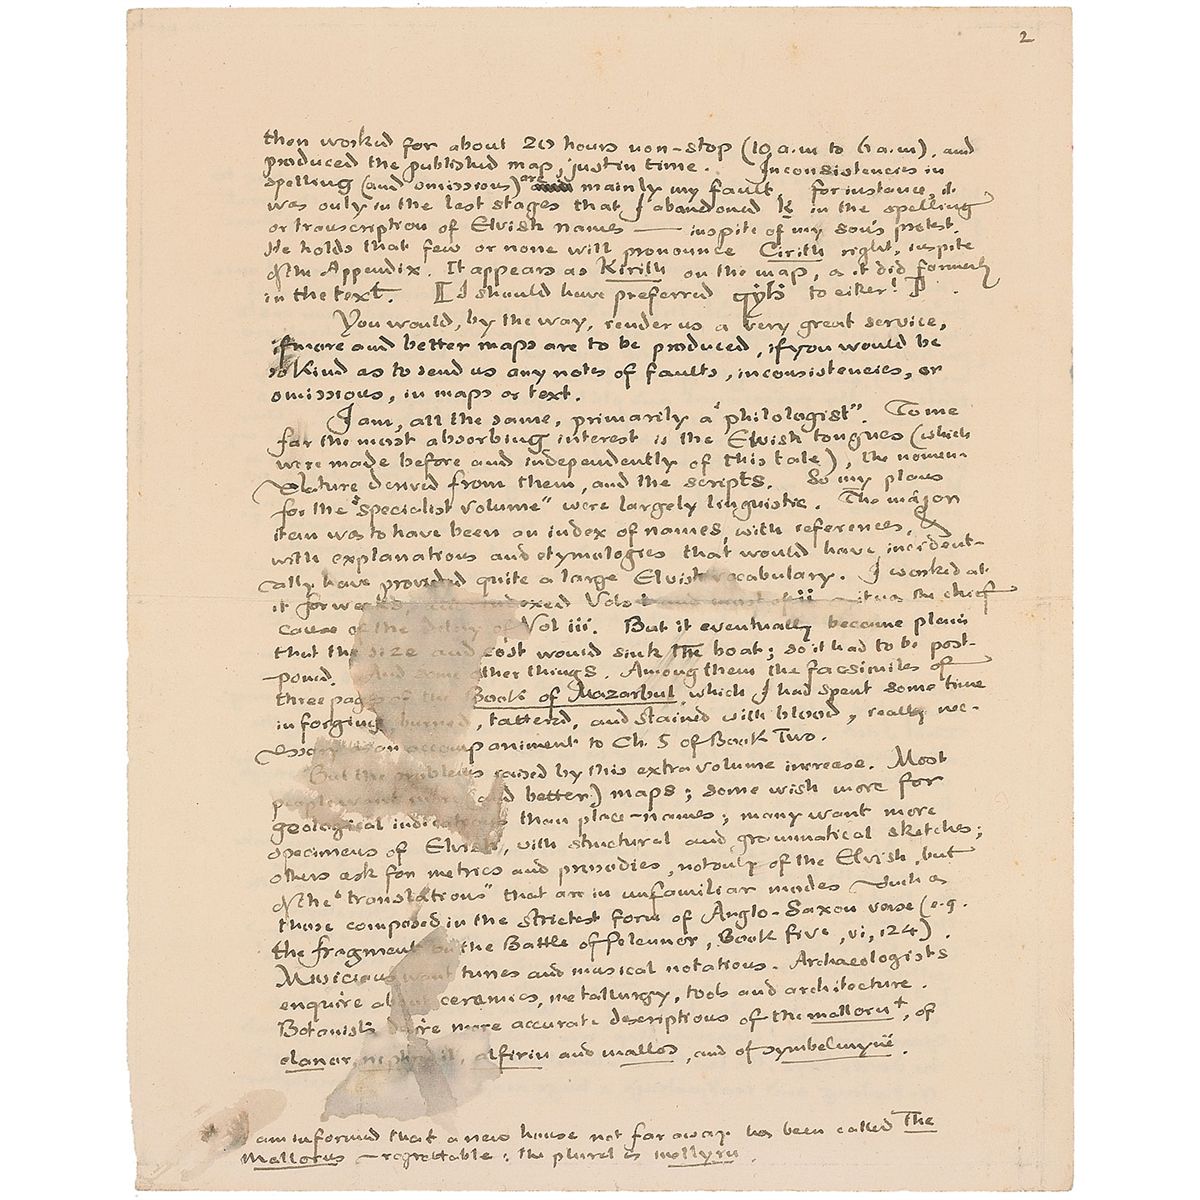 2
then worked for about 20 hours non-stop (10 a.m to 6 a.m), and
produced the published map, just in time. Inconsistencies in
spelling (and omissions) are mainly my fault. For instance, it
was only in the last stages that I abandoned k in the spelling
or transcription of Elvish names — inspite of my son's protest.
He holds that few or none will pronounce Cirith right, inspite
of the Appendix. It appears as Kirith on the map, as it did formerly
in the text. [I should have preferred to either!]
You would, by the way, render us a very great service,
if more and better maps are to be produced, if you would be
so kind as to send us any notes of faults, inconsistencies, or
omissions, in maps or text.
I am, all the same, primarily a "philologist". To me
far the most absorbing interest is the Elvish tongues (which
were made before and independently of this tale), the nomen-
clature derived from them, and the scripts. So my plans
for the "specialist volume" were largely linguistic. The major
item was to have been an index of names, with references, &
with explanations and etymologies that would have, incident-
ally have provided quite a large Elvish vocabulary. I worked at
it for weeks, and indexed Vols i and most of ii – it was the chief
cause of the delay of Vol iii. But it eventually became plain
that the size and cost would sink the boat; so it had to be post-
poned. And some other things. Among them the facsimiles of
three pages of the Book of Mazarbul, which I had spent some time
in forging, burned, tattered, and stained with blood, really ne-
cessary as an accompaniment to Ch. 5 of Book Two.
But the problems raised by this extra volume increase. Most
people want more (and better) maps; some wish more for
geological indications than place-names; many want more
specimens of Elvish, with structural and grammatical sketches;
others ask for metrics and prosodies, not only of the Elvish, but
of the "translations" that are in unfamiliar modes such as
those composed in the strictest form of Anglo-Saxon verse (e.g.
the fragment on the Battle of Pelennor, Book Five, vi, 124).
Musicians want tunes and musical notations. Archaeologists
enquire about ceramics, metallurgy, tools and architecture.
Botanists desire more accurate descriptions of the mallorn+, of
elanor, niphredil, alfirin and mallos, and of symbelmynë.
I am informed that a new house not far away has been called The
Mallorns – regrettable: the plural is mellyrn.